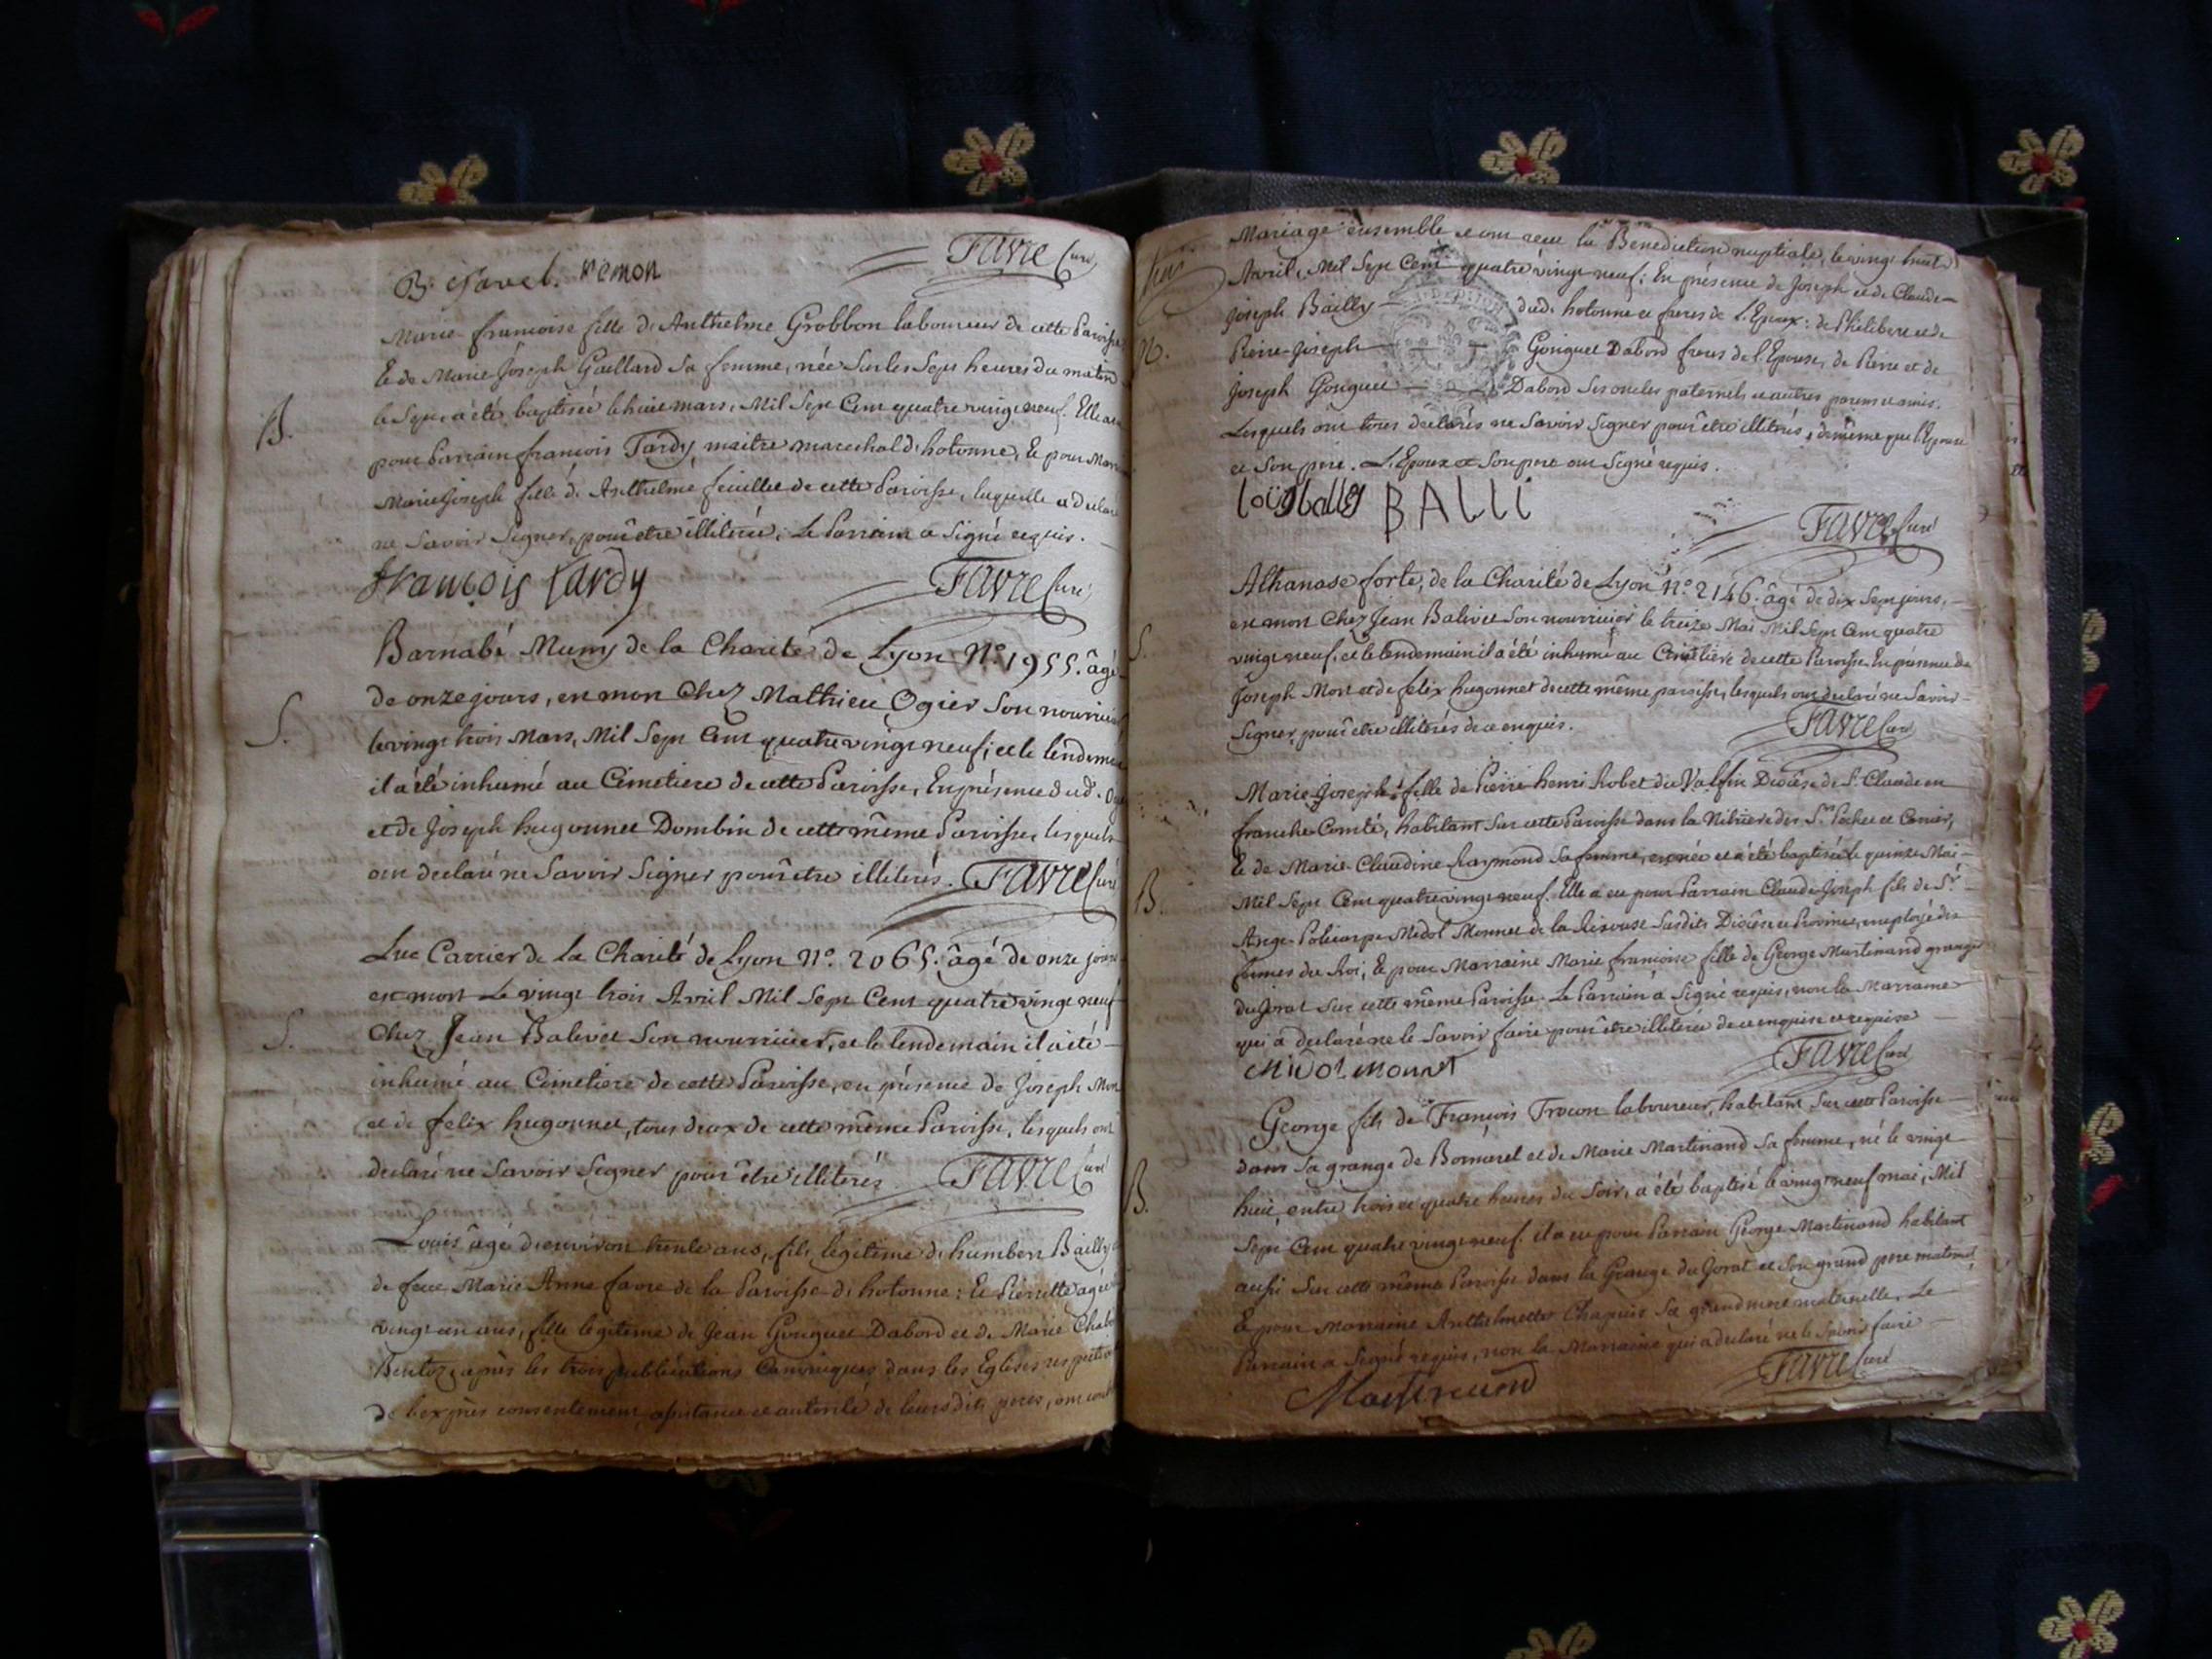 Favre Curé
B. Navel. remon
Marie francoise fille d'Anthelme Grobbon laboureur de cette Paroisse
Et de Marie Joseph Gaillard Sa femme, née Sur les Sept heures du matin
le Sept, a été baptisée le huit mars, Mil Sept Cent quatre vingt neuf. Elle a eu
B.
pour Parrain francois Tardy, maitre marechal d'hotonne, Et pour Mar
Marie Joseph fille d'Anthelme feuillet de cette Paroisse, laquelle a declaré
ne Savoir Signer, pour être illiterée. Le Parrain a Signé requis.
francois tardy
Favre Curé
Barnabé Mumy de la Charité de Lyon N.° 1955. âgé
de onze jours, est mort Chez Mathieu Ogier Son nourricier
S.
le vingt trois Mars, Mil Sept Cent quatre vingt neuf, et le lendemain
il a été inhumé au Cimetiere de cette Paroisse, En présence dud.
et de Joseph hugonnet Dombin de cette même Paroisse, lesquels
ont declaré ne Savoir Signer pour être illiterés.
Favre Curé
Luc Carrier de la Charité de Lyon N°. 2065. âgé de onze jours
est mort Le vingt trois Avril Mil Sept Cent quatre vingt neuf
S.
Chez Jean Balivet Son nourricier, et le lendemain il a été
inhumé au Cimetiere de cette Paroisse, en présence de Joseph Mon
et de felix hugonnet, tous deux de cette même Paroisse, lesquels ont
declaré ne Savoir Signer pour être illiterés
Favre Curé
Louis âgé d'environ trente ans, fils légitime d'humbert Bailly
de feue Marie Anne favre de la Paroisse d'hotonne: Et Pierrette agée
vingt un ans, fille légitime de Jean Gouguet Dabord et de Marie
après les trois publications Canoniques dans les Eglises respectives
de l'exprès consentement, assistance et autorité de leursdits peres, ont
Mariage ensemble et ont reçu la Benediction nuptiale, le vingt huit
Avril, Mil Sept Cent quatre vingt neuf: En présence de Joseph et de Claude
Joseph Bailly dud. hotonne et freres de L'Epoux: de Philibert et de
Pierre-Joseph Gouguet Dabord freres de l'Epouse, de Pierre et de
Joseph Gouguet Dabord Ses oncles paternels et autres parens et amis.
Lesquels ont tous declarés ne Savoir Signer pour être illiterés, de même que l'Epouse
et Son pere. L'Epoux et Son pere ont Signé requis.
BALLI
Favre Curé
Athanase forte, de la Charité de Lyon N°. 2146. âgé de dix Sept jours,
est mort Chez Jean Balivet Son nourricier le treize Mai Mil Sept Cent quatre
S.
vingt neuf, et le lendemain il a été inhumé au Cimetiere de cette Paroisse En présence de
Joseph Mon et de felix hugonnet de cette même paroisse, lesquels ont declaré ne Savoir
Signer, pour être illiterés de ce enquis.
Favre Curé
Marie-Joseph fille de Pierre henri Robet du Valfin Diocèse de St. Claude en
franche-Comté, habitant Sur cette Paroisse dans la
Et de Marie-Claudine Raymond Sa femme, est née et a été baptisée le quinze Mai
B.
Mil Sept Cent quatre vingt neuf. Elle a eu pour Parrain Claude-Joseph fils de Sr.
Ange-Policarpe Midol Monnet de la Susdits Diocèse et Province, employé des
fermes du Roi, Et pour Marraine Marie francoise fille de George Martinand granger
du Jorat Sur cette même Paroisse. Le Parrain a Signé requis, non la Marraine
qui a declaré ne le Savoir faire pour être illiterée de ce enquise et requise
Midol Monnet
Favre Curé
George fils de François Trocon laboureur, habitant Sur cette Paroisse
dans la grange de Bornarel et de Marie Martinand Sa femme, né le vingt
B.
huit, entre trois et quatre heures du Soir, a été baptisé le vingt neuf mai, Mil
Sept Cent quatre vingt neuf. il a eu pour Parrain George Martinand habitant
aussi Sur cette même Paroisse dans la Grange du Jorat et Son grand pere maternel
Et pour Marraine Anthelmette Chapuis Sa grand mere maternelle. Le
Parrain a Signé requis, non la Marraine qui a declaré ne le Savoir faire
Favre Curé
Martinand